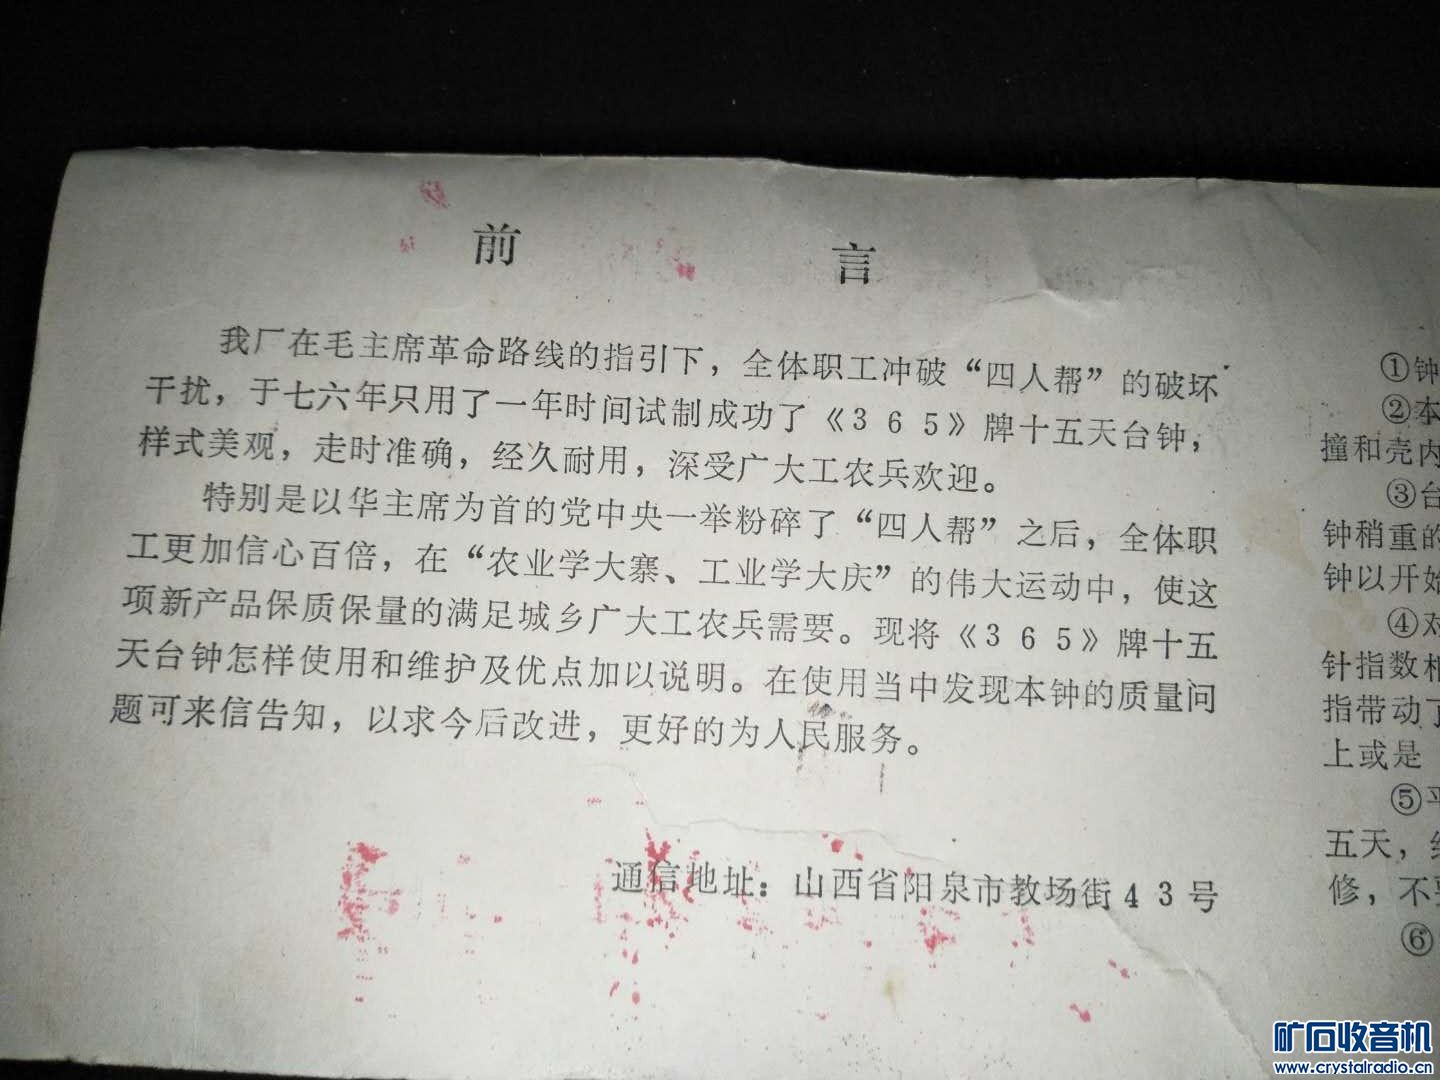 前言
我厂在毛主席革命路线的指引下，全体职工冲破“四人帮”的破坏
干扰，于七六年只用了一年时间试制成功了《365》牌十五天台钟，
样式美观，走时准确，经久耐用，深受广大工农兵欢迎。
特别是以华主席为首的党中央一举粉碎了“四人帮”之后，全体职
工更加信心百倍，在“农业学大寨、工业学大庆”的伟大运动中，使这
项新产品保质保量的满足城乡广大工农兵需要。现将《365》牌十五
天台钟怎样使用和维护及优点加以说明。在使用当中发现本钟的质量问
题可来信告知，以求今后改进，更好的为人民服务。
通信地址：山西省阳泉市教场街43号
①钟
②本
撞和壳内
③台
钟稍重的
钟以开始
④对
针指数相
指带动了
上或是
⑤平
五天，
修，不要
⑥
矿石收音机
www.crystalradio.cn